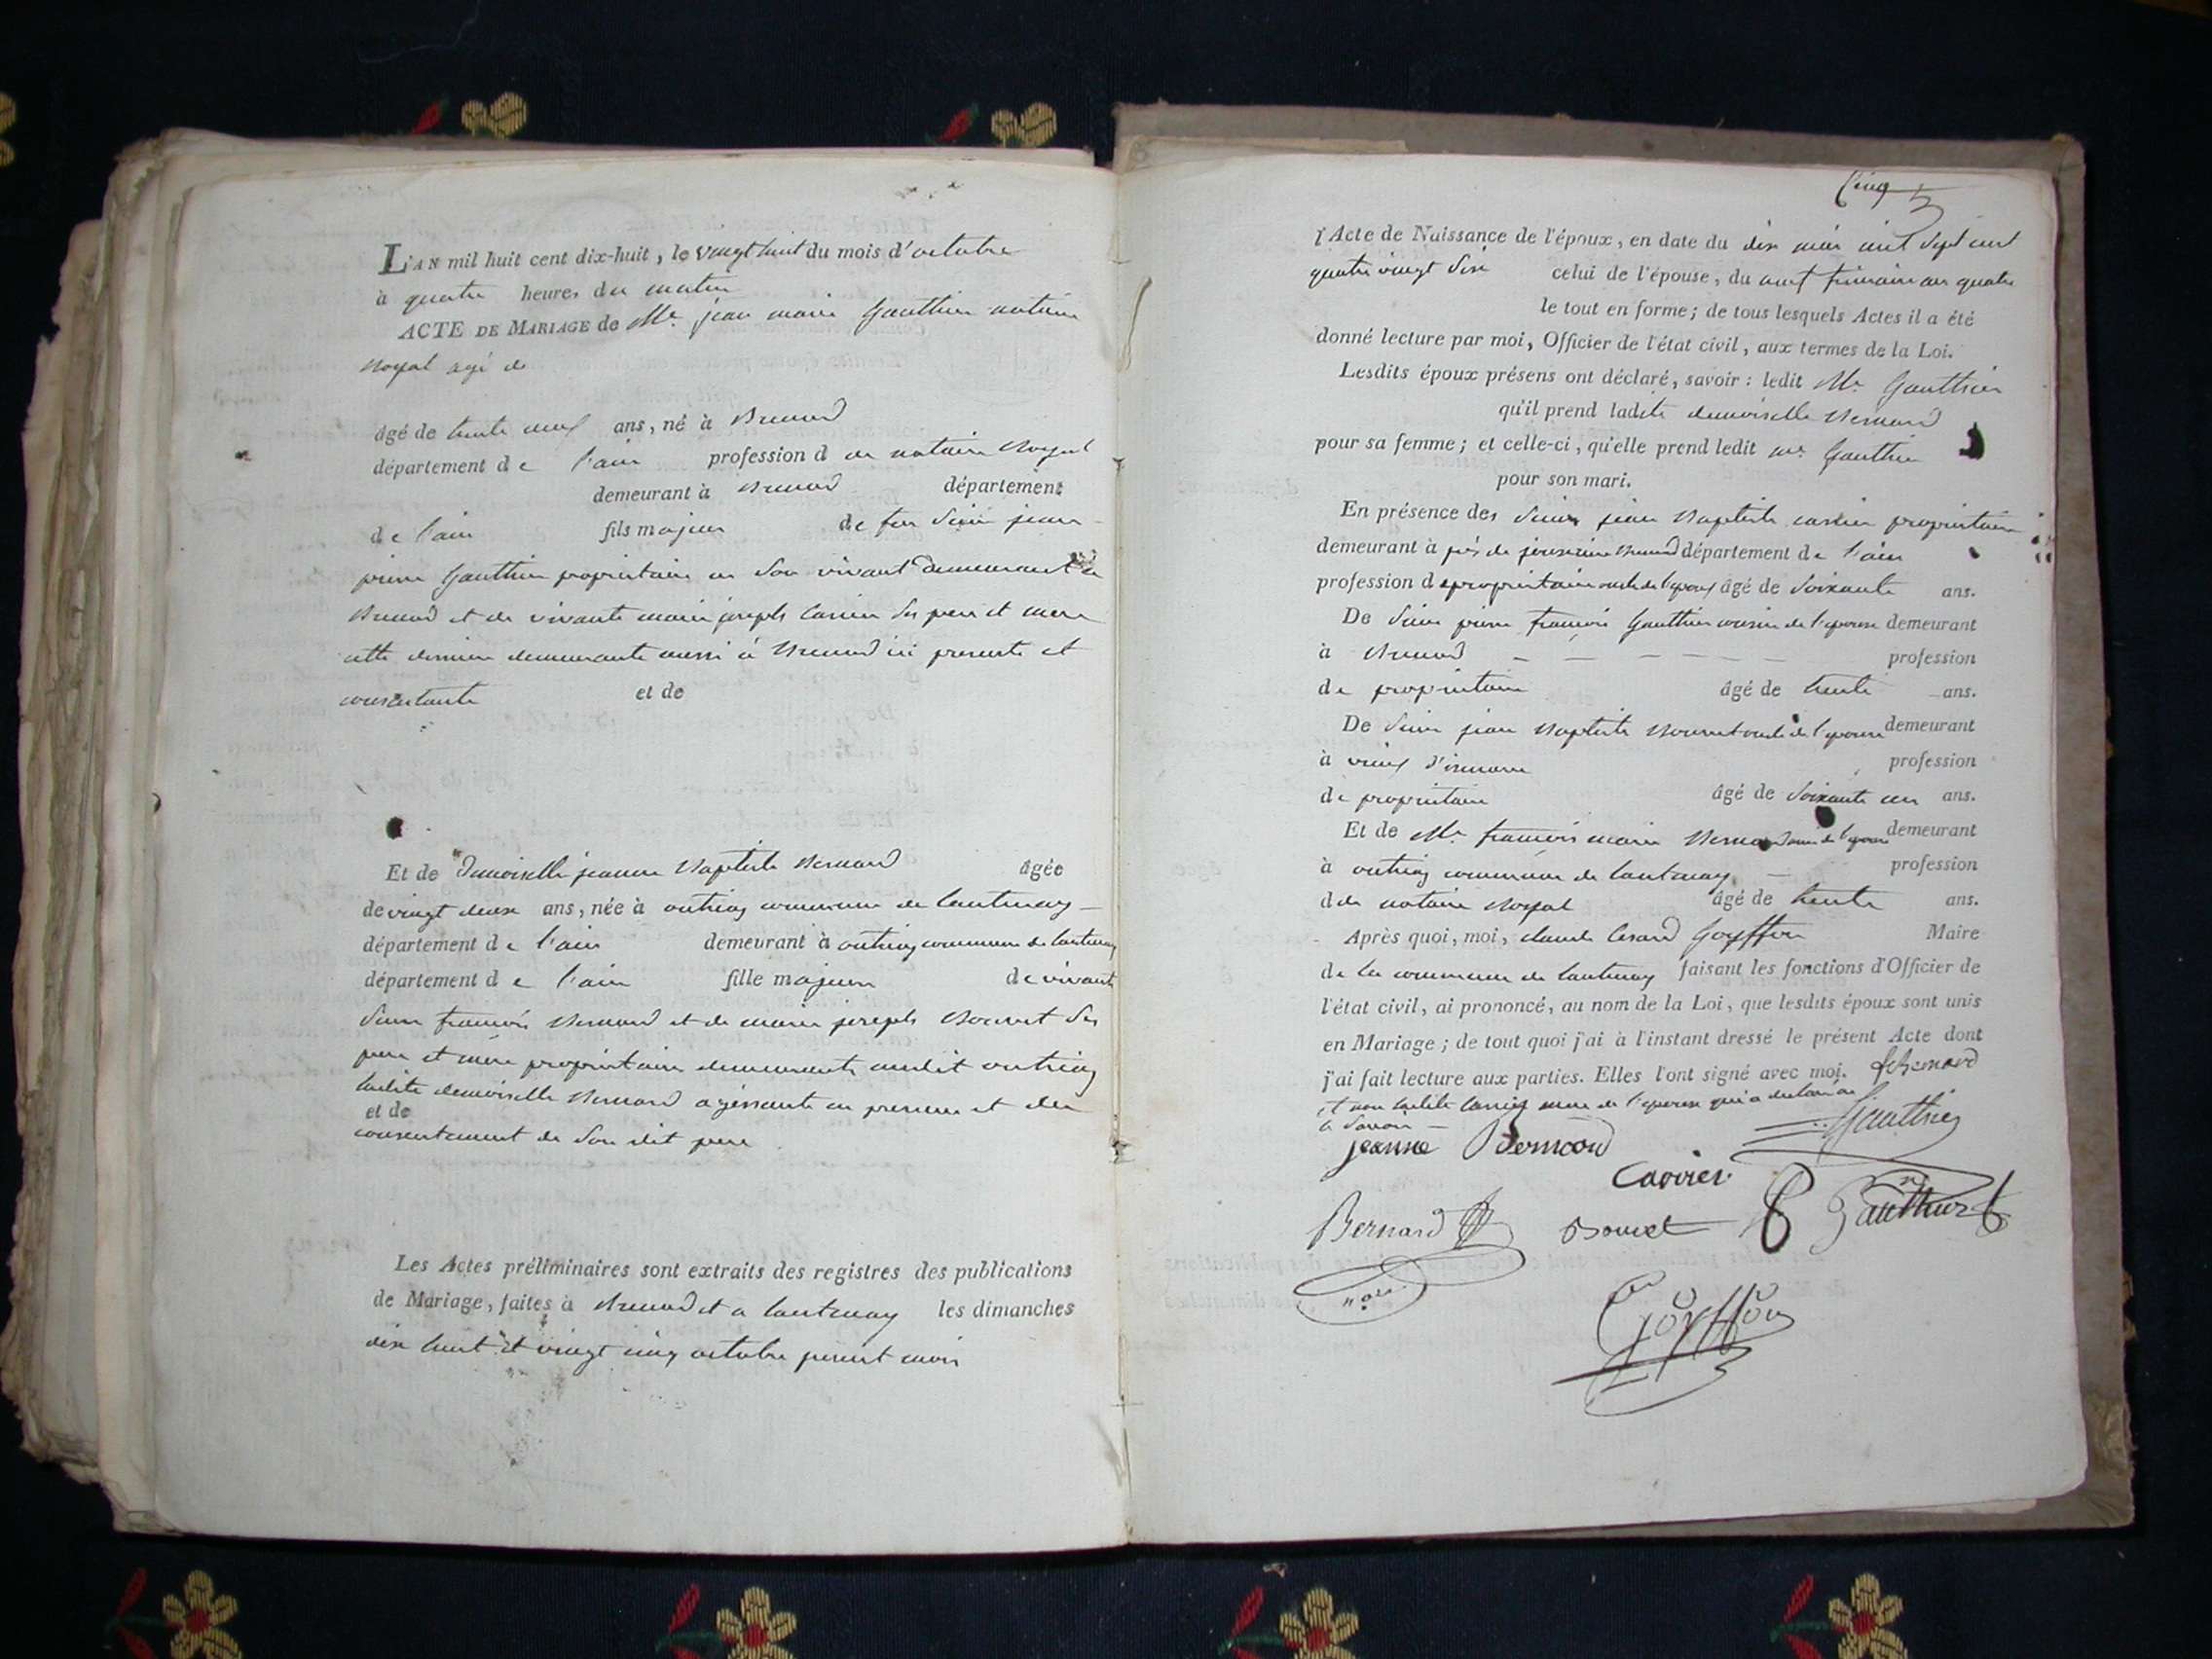 L'AN mil huit cent dix-huit, le vingt huit du mois d'octobre
à quatre heures du matin
ACTE DE MARIAGE de Me jean marie Gauthier notaire
Royal agé de
âgé de trente neuf ans, né à Brenod
département de l'ain profession d de notaire Royal
demeurant à Brenod département
de l'ain fils majeur de feu Sieur jean
pierre Gauthier proprietaire en son vivant demeurant a
Brenod et de vivante marie joseph Carrier ses pere et mere
cette derniere demeurante aussi à Brenod ici presente et
consentante et de
Et de Demoiselle jeanne Baptiste Bernard âgée
de vingt deux ans, née à outriaz commune de lantenay
département de l'ain demeurant à outriaz commune de lantenay
département de l'ain fille majeure de vivant
Sieur françois Bernard et de marie joseph Bouvet ses
pere et mère propriétaires demeurants audit outriaz
ladite demoiselle Bernard agissante en presence et du
et de
consentement de son dit pere
Les Actes préliminaires sont extraits des registres des publications
de Mariage, faites à Brenod et a lantenay les dimanches
dix huit et vingt cinq octobre present mois
Cinq 5
l'Acte de Naissance de l'époux, en date du dix mai mil sept cent
quatre vingt dix celui de l'épouse, du neuf frimaire an quatre
le tout en forme; de tous lesquels Actes il a été
donné lecture par moi, Officier de l'état civil, aux termes de la Loi.
Lesdits époux présens ont déclaré, savoir: ledit Me Gauthier
qu'il prend ladite demoiselle Bernard
pour sa femme; et celle-ci, qu'elle prend ledit Me Gauthier
pour son mari.
En présence des Sieurs jean Baptiste carrier propriétaire
demeurant à Brenod département de l'ain
profession de propriétaire oncle de l'epoux âgé de Soixante ans.
De Sieur pierre françois Gauthier cousin de l'epoux demeurant
à Brenod profession
de propriétaire âgé de trente ans.
De Sieur jean Baptiste Bouvet oncle de l'epouse demeurant
à vieux d'izenave profession
de propriétaire âgé de Soixante un ans.
Et de Me françois marie Bernard de l'epouse demeurant
à outriaz commune de lantenay profession
d de notaire Royal âgé de trente ans.
Après quoi, moi, claude Goyffon Maire
de la commune de lantenay faisant les fonctions d'Officier de
l'état civil, ai prononcé, au nom de la Loi, que lesdits époux sont unis
en Mariage; de tout quoi j'ai à l'instant dressé le présent Acte dont
j'ai fait lecture aux parties. Elles l'ont signé avec moi. Bernard
et non ladite Carrier mere de l'epoux qui a declaré ne
le savoir
Gauthier
jeanne Bernard
Carrier
Bernard Bouvet Gauthier
nore
Goyffon